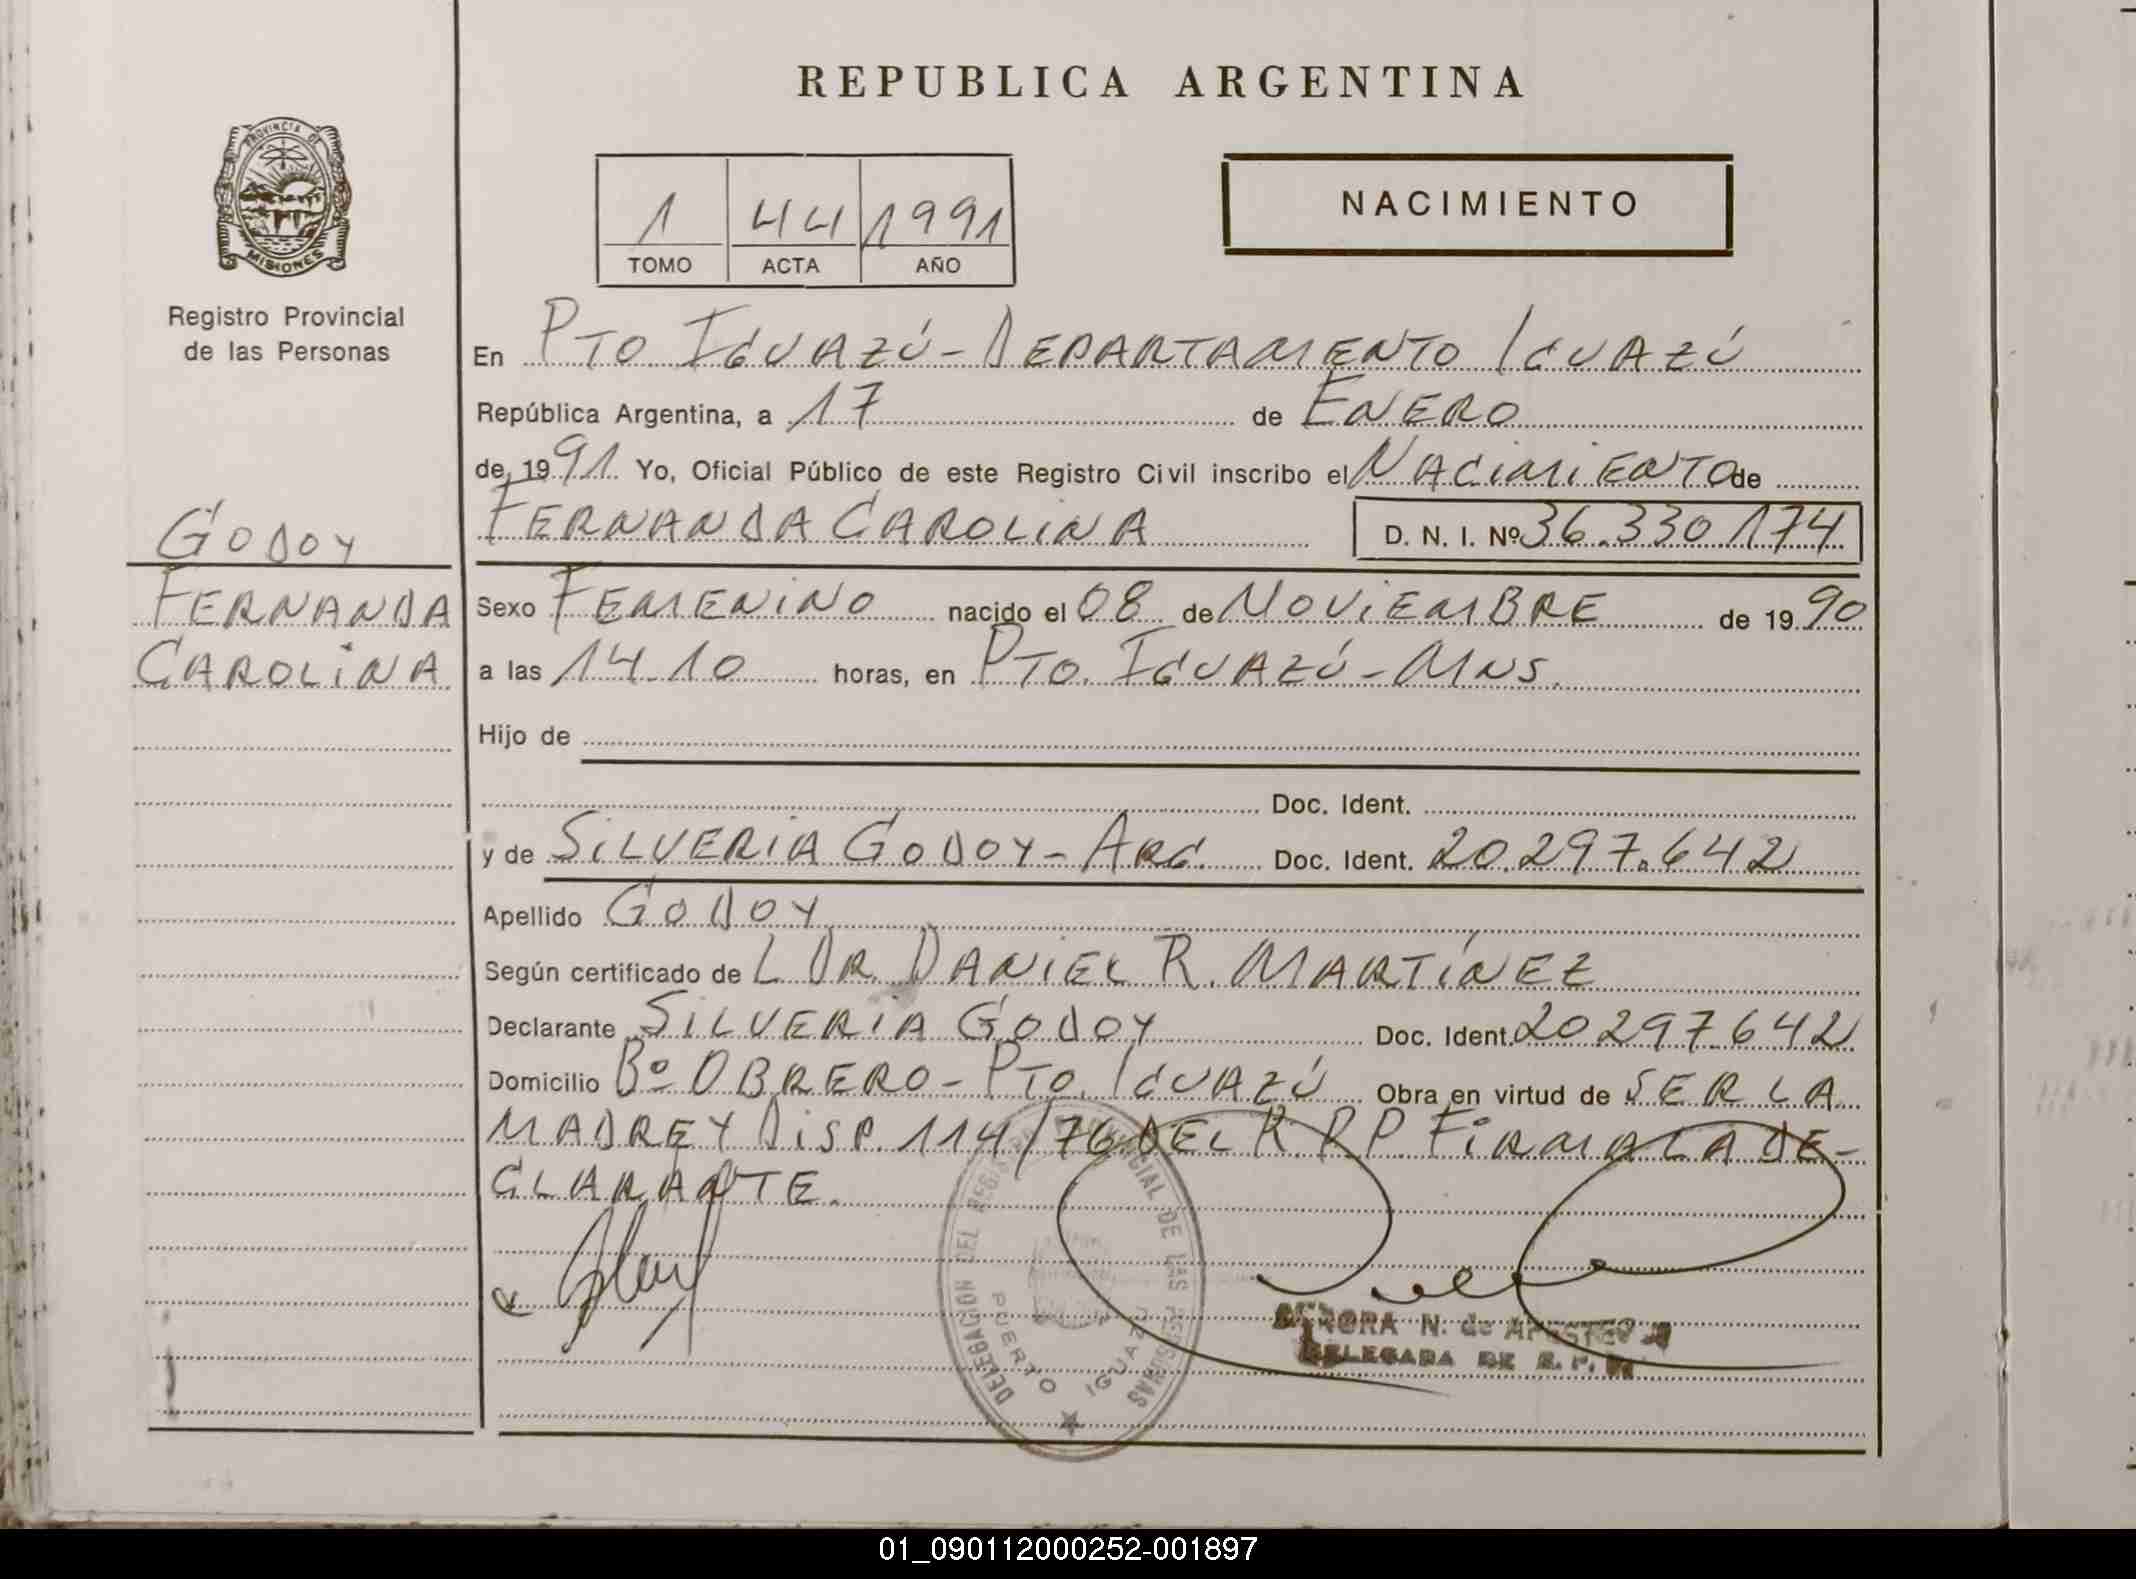 REPUBLICA ARGENTINA
PROVINCIA DE
MISIONES
Registro Provincial
de las Personas
NACIMIENTO
1 44 1991
TOMO ACTA AÑO
En PTO IGUAZÚ - DEPARTAMENTO IGUAZÚ
República Argentina, a 17 de ENERO
de 1991 Yo, Oficial Público de este Registro Civil inscribo el NACIMIENTO de
GODOY
FERNANDA CAROLINA D. N. I. Nº 36.330174
FERNANDA
CAROLINA
Sexo FEMENINO nacido el 08 de NOVIEMBRE de 1990
a las 14.10 horas, en PTO. IGUAZÚ - MNS.
Hijo de
Doc. Ident.
y de SILVERIA GODOY - ARG. Doc. Ident. 20.297.642
Apellido GODOY
Según certificado de L DR. DANIEL R. MARTÍNEZ
Declarante SILVERIA GODOY Doc. Ident. 20297.642
Domicilio Bº OBRERO - PTO. IGUAZÚ Obra en virtud de SER LA
MADRE Y DISP. 114/76 DEL R.P.P. FIRMA LA DE-
CLARANTE.
DELEGACION DEL REGISTRO PROVINCIAL DE LAS PERSONAS
PUERTO IGUAZU
N. de
DELEGADA DE R. P.
01_090112000252-001897